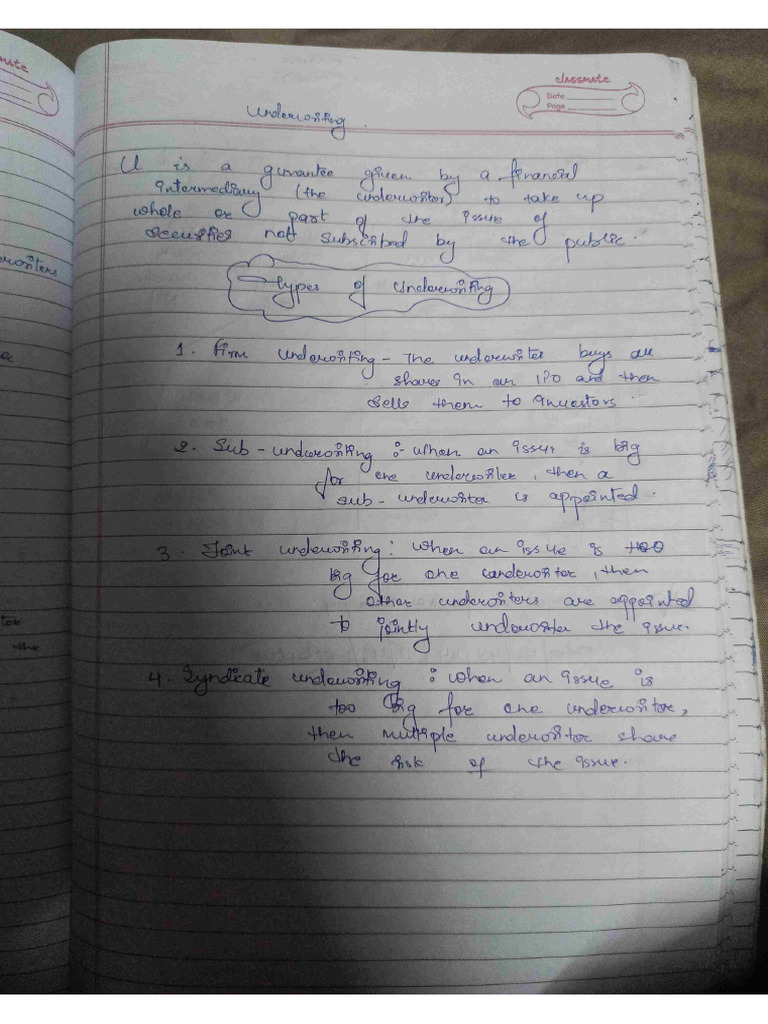 mate
classmate
Date
Page
Underwriting.
U is a gurantee given by a financial
intermediary (the underwriter) to take up
whole or part of the issue of
securities not subscribed by the public.
Types of Underwriting
1. Firm underwriting - The underwriter buys all
shares in an IPO and then
sells them to investors.
2. Sub-underwriting :- when an issue is big
for one underwriter, then a
sub-underwriter is appointed.
3. Joint underwriting : when an issue is too
big for one underwriter, then
other underwriters are appointed
to jointly underwriter the issue.
4. Syndicate underwriting : when an issue is
too big for one underwriter,
then multiple underwriter share
the risk of the issue.
the